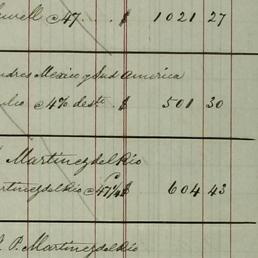 well c/47 . $ 1021 27
ndres Mexico y Sud America
ulio c/4% desto $ 501 30
Martinez del Rio
rtinez del Rio c/47½ $ 604 43
P. Martinez del Rio